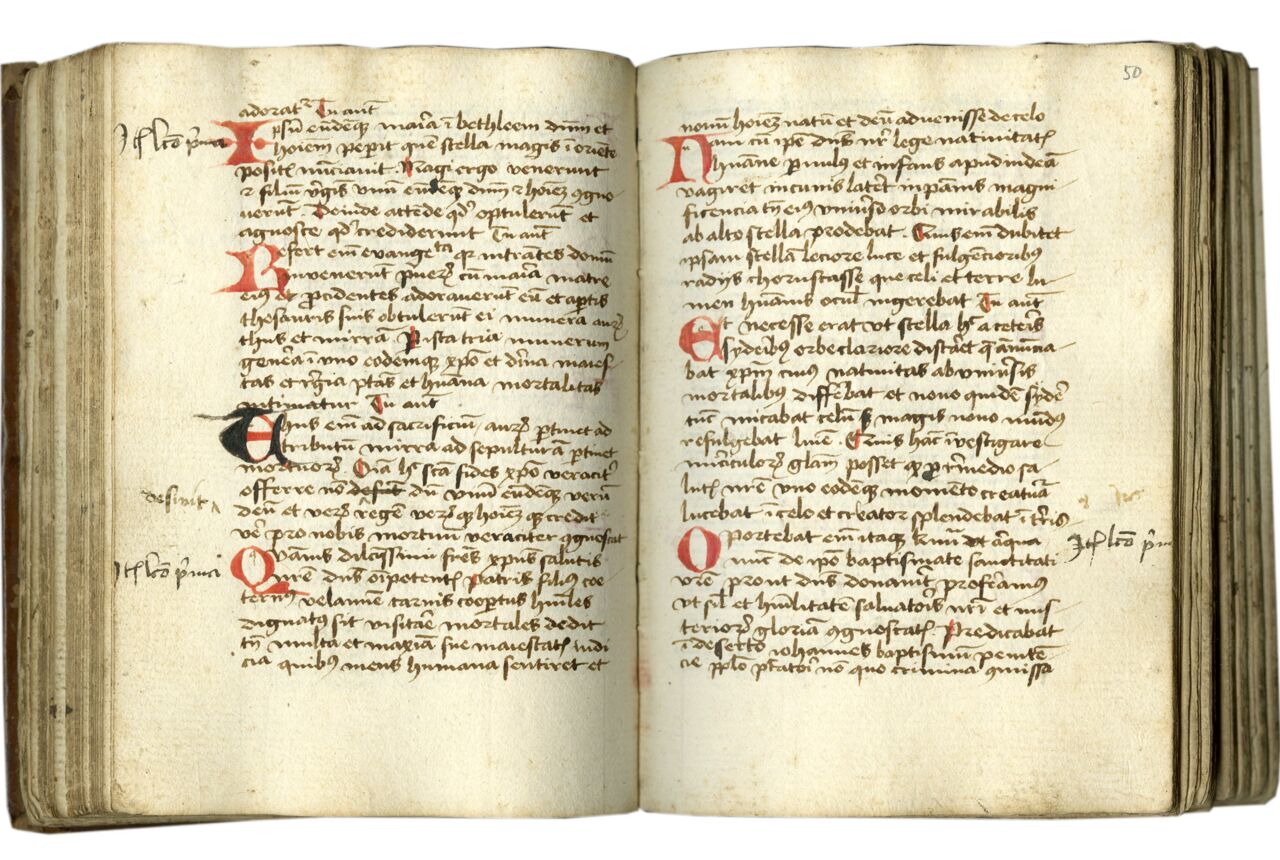 adorat(ur) Tu aut(em)
Ipsu(m) eu(n)de(m)q(ue) maria i(n) bethleem deu(m) et
hoiem peperit que(m) stella magis i(n) orie(n)te
posit(is) nu(n)ciavit. Magi ergo venerunt
et filiu(m) v(ir)g(in)is unu(m) eu(n)de(m)q(ue) deum et hoiez (con)gno-
verunt. Deinde atte(n)de q(ui)d optuleru(n)t et
agnosce q(ui)d crediderunt Tu aut
Refert eni(m) evange(lis)ta q(uia) intra(n)tes domu(m)
invenerunt pueru(m) cu(m) maria matre
eius et p(ro)cidentes adoraveru(n)t eu(m) et ap(er)tis
thesauris suis obtuleru(n)t ei munera auru(m)
thus et mirra(m). Ista tria munerum
gen(er)a i(n) uno eode(m)q(ue) xpo et divina maies-
tas et regia p(otes)tas et hu(m)ana mortalitas
intimatur. Tu aut
Thus eni(m) ad sacrificiu(m), auru(m) p(er)tinet ad
tributu(m) mirra ad sepultura(m) p(er)tinet
mortuoru(m). s(an)c(t)a fides xpo veracit(er)
offerre no(n) desinit du(m) unu(m) eu(n)de(m)q(ue) veru(m)
deu(m) et veru(m) rege(m) veru(m)q(ue) hoiez q(ue) credit
pro nobis mortuu(m) veraciter (con)gnoscat
Quamvis dilectissimi fr(atr)es xpus salutis
n(ost)re d(omi)n(u)s o(mn)ipotent(is) patris filius coe-
ternus velami(n)e carnis coop(er)tus hu(m)iles
dignatus sit visitare mortales dedit
t(ame)n multa et maxi(m)a sue maiestat(is) iudi-
cia quibus mens humana sentiret et
desinit
It(em) l(e)c(ti)o p(ri)ma
It(em) l(e)c(ti)o p(ri)ma
50
novu(m) hoiez natu(m) et deu(m) advenisse de celo
Nam cu(m) ip(s)e d(omi)n(u)s n(oste)r lege nativitat(is)
hu(m)ane p(ar)vulus et infans apud iudea(m)
vagiret in cunis lat(er)et in pa(n)nis magni-
ficencia t(ame)n eius univ(er)so orbi mirabilis
ab alto stella prodebat. Quis eni(m) dubitet
ip(s)am stella(m) leciore luce et fulge(n)cioribus
radiis choruscasse que celi et terre lu-
men hu(m)anis ocul(is) ingerebat Tu aut
Et necesse erat ut stella h(ec) a ceteris
syderibus orbe clariore dista(r)et que an(n)u(n)cia-
bat xpm cuius nativitas ab univ(er)sis
mortalibus differebat et novo quide(m) syder(e)
tu(n)c micabat celu(m) s(ed) magis novo mu(n)dus
refulgebat lu(m)i(n)e. Quis ha(n)c i(n)vestigare
miraculoru(m) gl(ori)am posset
lut(is) n(ost)re uno eode(m)q(ue) mome(n)to creatura
lucebat i(n) celo et creator splendebat i(n) t(er)ris
Oportebat eni(m) itaq(ue)
nu(n)c de ip(s)o baptismate sa(n)ctitati
v(est)re prout d(omi)n(u)s donav(er)it proferamus
ut si(mu)l et hu(m)ilitate(m) salvatoris n(ost)ri et mis-
terioru(m) gloria(m) (con)gnoscatis. Predicabat
i(n) deserto iohannes baptismu(m) penite(n)-
cie p(o)p(u)lo p(ec)catori no(n) quo crimina (com)missa
It(em) l(e)c(ti)o p(ri)ma